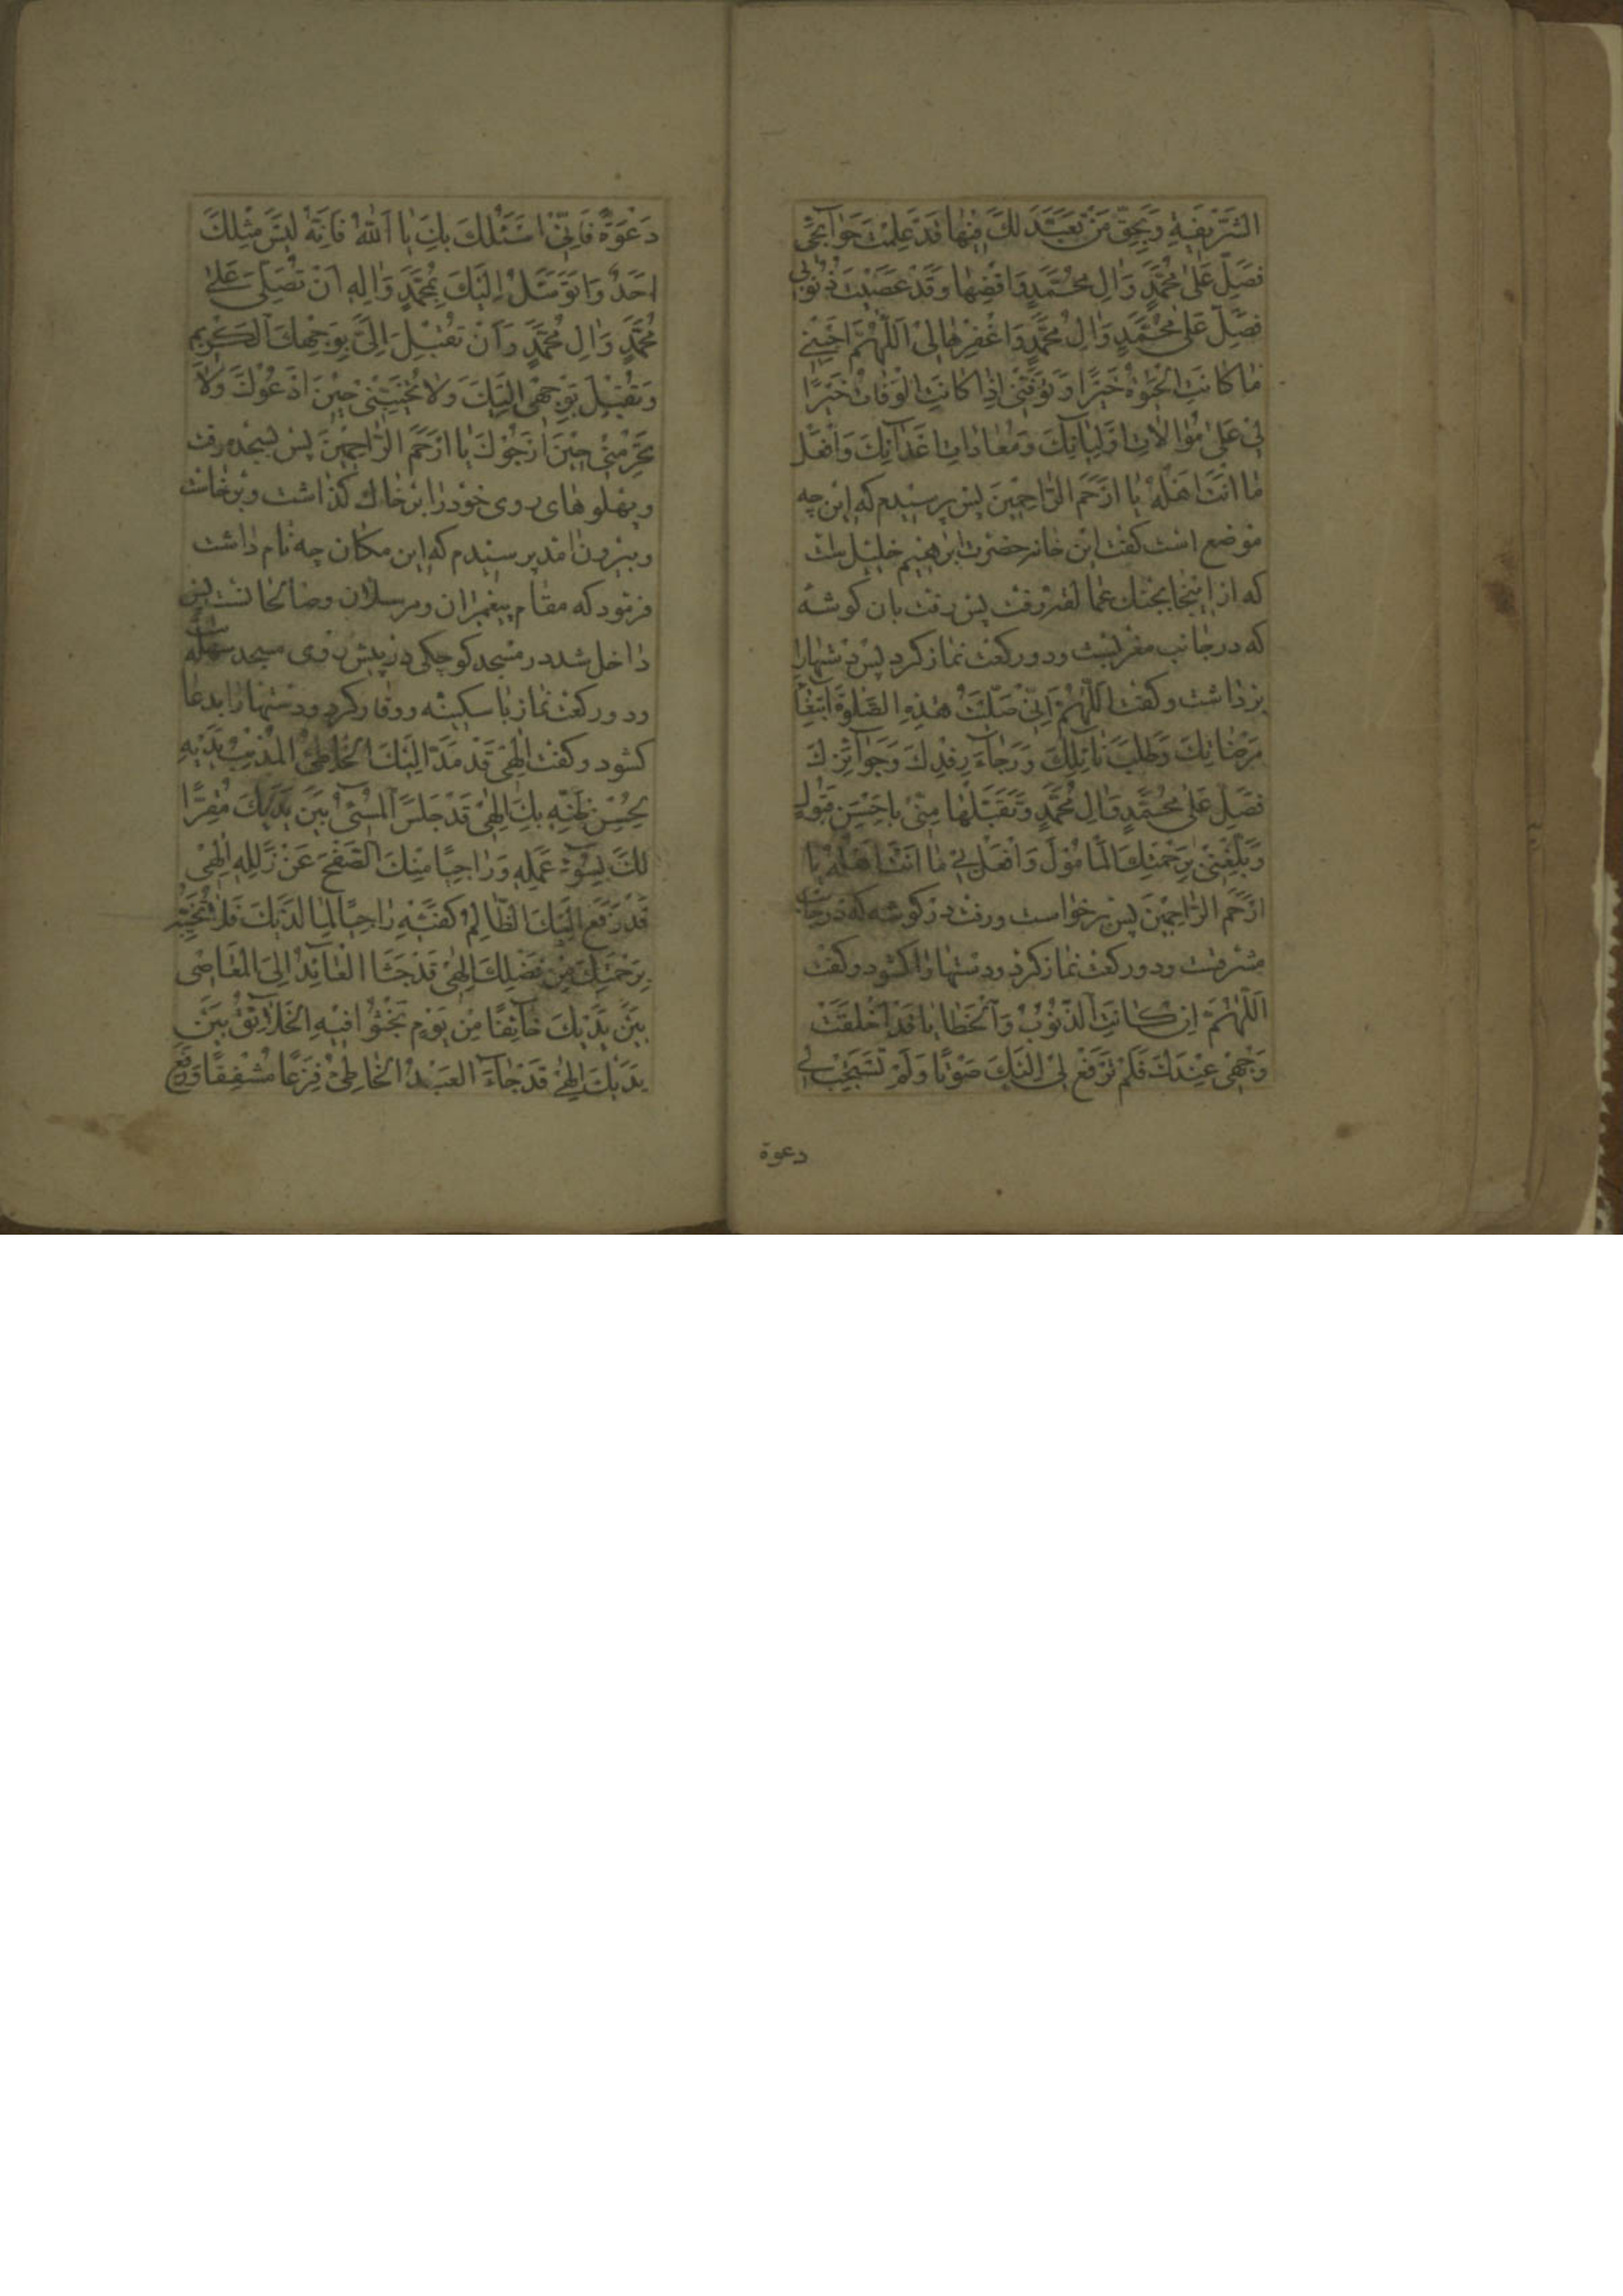 الشَّرِیفَةِ وَبِحَقِّ مَنْ تَعَبَّدَ لَكَ فِیْهَا قَدْ عَلِمْتَ حَوَائِجِی
فَصَلِّ عَلٰی مُحَمَّدٍ وَاٰلِ مُحَمَّدٍ وَاقْضِهَا وَقَدْ عَصَیْتَ ذُنُوْبِی
فَصَلِّ عَلٰی مُحَمَّدٍ وَاٰلِ مُحَمَّدٍ وَاغْفِرْهَا لِیْ اَللّٰهُمَّ اَحْیِنِیْ
مَا كَانَتِ الْحَیٰوةُ خَیْرًا وَتَوَفَّنِیْ اِذَا كَانَتِ الْوَفَاتُ خَیْرًا
لِیْ عَلٰی مُوَالَاتِ اَوْلِیَائِكَ وَمُعَادَاتِ اَعْدَائِكَ وَافْعَلْ
مَا اَنْتَ اَهْلُهُ یَا اَرْحَمَ الرَّاحِمِیْنَ پس پرسیدم كه این چه
موضع است كفت این خانه حضرت ابرهیم خلیل است
كه از اینجا بجنك عمالقه رفت پس رفت بان كوشه
كه در جانب مغربست ودو ركعت نماز كرد پس دستهارا
برداشت وكفت اَللّٰهُمَّ اِنِّیْ صَلَّیْتُ هٰذِهِ الصَّلٰوةَ ابْتِغَاءَ
مَرْضَاتِكَ وَطَلَبَ نَائِلِكَ وَرَجَاءَ رِفْدِكَ وَجَوَائِزِكَ
فَصَلِّ عَلٰی مُحَمَّدٍ وَاٰلِ مُحَمَّدٍ وَتَقَبَّلْهَا مِنِّیْ بِاَحْسَنِ قَبُوْلٍ
وَبَلِّغْنِیْ بِرَحْمَتِكَ الْمَامُوْلَ وَافْعَلْ بِیْ مَا اَنْتَ اَهْلُهُ یَا
اَرْحَمَ الرَّاحِمِیْنَ پس برخواست ورفت در كوشه كه در جانب
مشرقت ودو ركعت نماز كرد ودستهارا كشود وكفت
اَللّٰهُمَّ اِنْ كَانَتِ الذُّنُوْبُ وَالْخَطَایَا قَدْ اَخْلَقَتْ
وَجْهِیْ عِنْدَكَ فَلَمْ تَرْفَعْ لِیْ اِلَیْكَ صَوْتًا وَلَمْ تَسْتَجِبْ لِیْ
دعوة
دَعْوَةً فَاِنِّیْ اَسْئَلُكَ بِكَ یَا اَللّٰهُ فَاِنَّهُ لَیْسَ مِثْلَكَ
اَحَدٌ وَاَتَوَسَّلُ اِلَیْكَ بِمُحَمَّدٍ وَاٰلِهِ اَنْ تُصَلِّیَ عَلٰی
مُحَمَّدٍ وَاٰلِ مُحَمَّدٍ وَاَنْ تُقْبِلَ اِلَیَّ بِوَجْهِكَ الْكَرِیْمِ
وَتُقْبِلَ بِوَجْهِیْ اِلَیْكَ وَلَا تُخَیِّبْنِیْ حِیْنَ اَدْعُوْكَ وَلَا
تَحْرِمْنِیْ حِیْنَ اَرْجُوْكَ یَا اَرْحَمَ الرَّاحِمِیْنَ پس بسجده رفت
وپهلوهای روی خود را بر خاك كذاشت وبرخاست
وبیرون امد پرسیدم كه این مكان چه نام داشت
فرمود كه مقام پیغمبران ومرسلان وصالحانست پس
داخل شد در مسجد كوچكی در پیش روی مسجد سهله است
ودو ركعت نماز با سكینه ووقار كرد ودستها را بدعا
كشود وكفت اِلٰهِیْ قَدْ مَدَّ اِلَیْكَ الْخَاطِئُ الْمُذْنِبُ یَدَیْهِ
بِحُسْنِ ظَنِّهِ بِكَ اِلٰهِیْ قَدْ جَلَسَ الْمُسِیْئُ بَیْنَ یَدَیْكَ مُقِرًّا
لَكَ بِسُوْءِ عَمَلِهِ وَرَاجِیًا مِنْكَ الصَّفْحَ عَنْ زَلَلِهِ اِلٰهِیْ
قَدْ رَفَعَ اِلَیْكَ الظَّالِمُ كَفَّیْهِ رَاجِیًا لِمَا لَدَیْكَ فَلَا تُخَیِّبْهُ
بِرَحْمَتِكَ مِنْ فَضْلِكَ اِلٰهِیْ قَدْ جَثَا الْعَائِدُ اِلَی الْمَعَاصِی
بَیْنَ یَدَیْكَ خَائِفًا مِنْ یَوْمٍ یَجْثُوْا فِیْهِ الْخَلَائِقُ بَیْنَ
یَدَیْكَ اِلٰهِیْ قَدْ جَاءَ الْعَبْدُ الْخَاطِئُ فَزِعًا مُشْفِقًا وَرَفَعَ